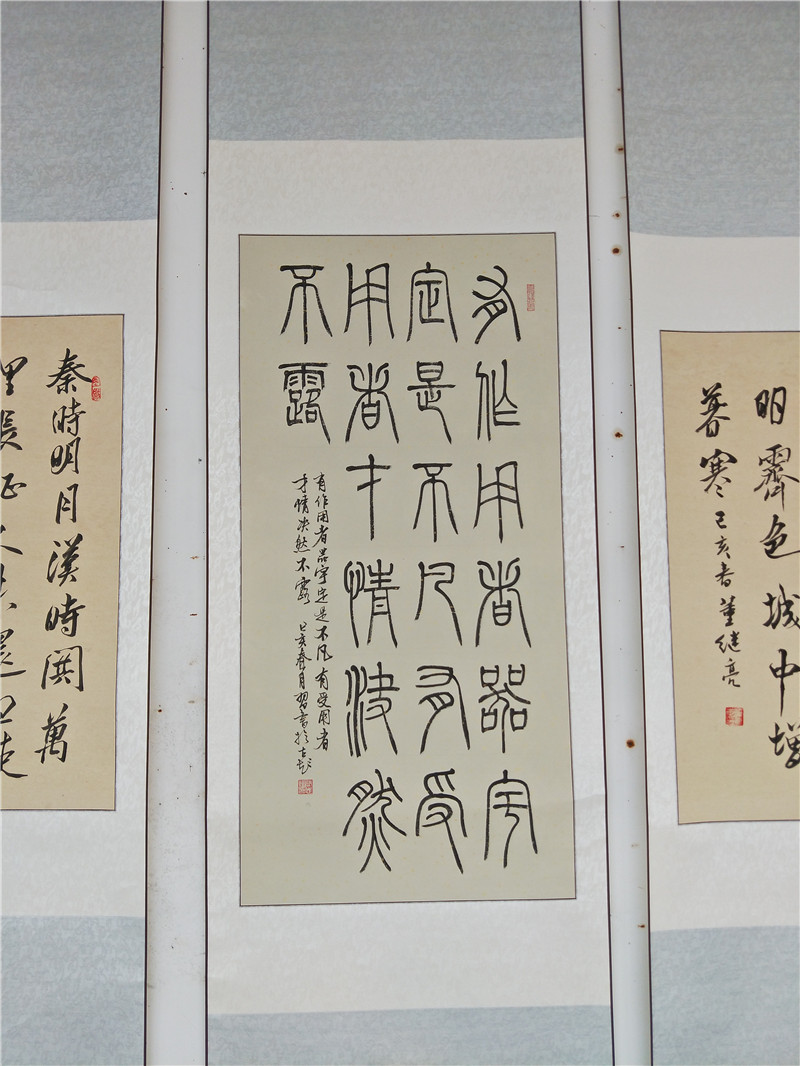 明霽色城中增
暮寒 己亥春董继亮
有作用者器宇
定是不凡有受
用者才情決然
不露
有作用者器宇定是不凡有受用者
才情决然不露 己亥春月習書於古越
秦時明月漢時関萬
里長征人未還但使